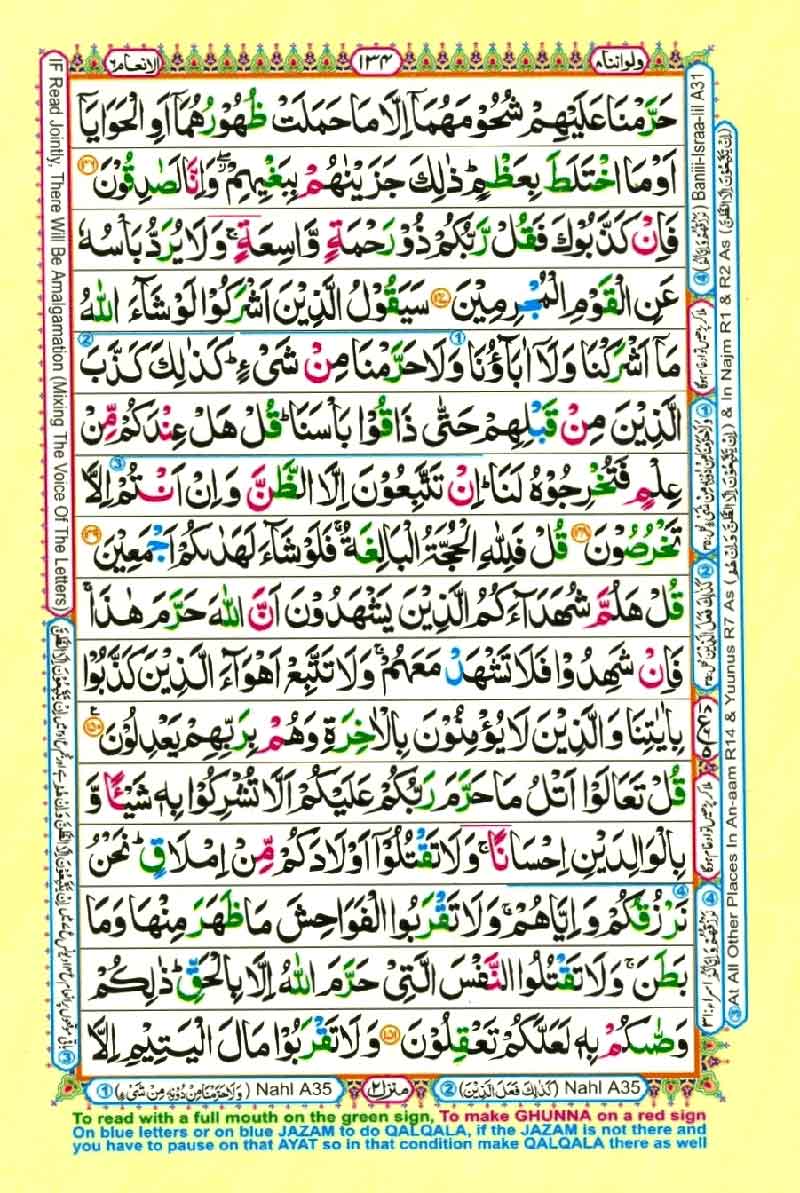 ولواننا ٨
١٣٤
الانعام ٦
حَرَّمْنَا عَلَيْهِمْ شُحُوْمَهُمَاۤ اِلَّا مَا حَمَلَتْ ظُهُوْرُهُمَاۤ اَوِ الْحَوَايَاۤ
اَوْ مَا اخْتَلَطَ بِعَظْمٍؕ ذٰلِكَ جَزَيْنٰهُمْ بِبَغْيِهِمْۖ وَاِنَّا لَصٰدِقُوْنَ ﴿۱۴۶﴾
فَاِنْ كَذَّبُوْكَ فَقُلْ رَّبُّكُمْ ذُوْ رَحْمَةٍ وَّاسِعَةٍۚ وَلَا يُرَدُّ بَاْسُهٗ
عَنِ الْقَوْمِ الْمُجْرِمِيْنَ ﴿۱۴۷﴾ سَيَقُوْلُ الَّذِيْنَ اَشْرَكُوْا لَوْ شَآءَ اللّٰهُ
مَاۤ اَشْرَكْنَا وَلَاۤ اٰبَآؤُنَا وَلَا حَرَّمْنَا مِنْ شَىْءٍؕ كَذٰلِكَ كَذَّبَ
الَّذِيْنَ مِنْ قَبْلِهِمْ حَتّٰى ذَاقُوْا بَاْسَنَاؕ قُلْ هَلْ عِنْدَكُمْ مِّنْ
عِلْمٍ فَتُخْرِجُوْهُ لَنَاؕ اِنْ تَتَّبِعُوْنَ اِلَّا الظَّنَّ وَاِنْ اَنْتُمْ اِلَّا
تَخْرُصُوْنَ ﴿۱۴۸﴾ قُلْ فَلِلّٰهِ الْحُجَّةُ الْبَالِغَةُۚ فَلَوْ شَآءَ لَهَدٰىكُمْ اَجْمَعِيْنَ ﴿۱۴۹﴾
قُلْ هَلُمَّ شُهَدَآءَكُمُ الَّذِيْنَ يَشْهَدُوْنَ اَنَّ اللّٰهَ حَرَّمَ هٰذَاۚ
فَاِنْ شَهِدُوْا فَلَا تَشْهَدْ مَعَهُمْۚ وَلَا تَتَّبِعْ اَهْوَآءَ الَّذِيْنَ كَذَّبُوْا
بِاٰيٰتِنَا وَالَّذِيْنَ لَا يُؤْمِنُوْنَ بِالْاٰخِرَةِ وَهُمْ بِرَبِّهِمْ يَعْدِلُوْنَ ﴿۱۵۰﴾
قُلْ تَعَالَوْا اَتْلُ مَا حَرَّمَ رَبُّكُمْ عَلَيْكُمْ اَلَّا تُشْرِكُوْا بِهٖ شَيْـًٔا وَّ
بِالْوَالِدَيْنِ اِحْسَانًاۚ وَلَا تَقْتُلُوْۤا اَوْلَادَكُمْ مِّنْ اِمْلَاقٍؕ نَحْنُ
نَرْزُقُكُمْ وَاِيَّاهُمْۚ وَلَا تَقْرَبُوا الْفَوَاحِشَ مَا ظَهَرَ مِنْهَا وَمَا
بَطَنَۚ وَلَا تَقْتُلُوا النَّفْسَ الَّتِىْ حَرَّمَ اللّٰهُ اِلَّا بِالْحَقِّؕ ذٰلِكُمْ
وَصّٰىكُمْ بِهٖ لَعَلَّكُمْ تَعْقِلُوْنَ ﴿۱۵۱﴾ وَلَا تَقْرَبُوْا مَالَ الْيَتِيْمِ اِلَّا
① (وَلَا حَرَّمْنَا مِنْ دُوْنِهٖ مِنْ شَىْءٍ) Nahl A35
منزل ٢
② (كَذٰلِكَ فَعَلَ الَّذِيْنَ) Nahl A35
IF Read Jointly, There Will Be Amalgamation (Mixing The Voice Of The Letters)
④ (نَرْزُقُهُمْ وَاِيَّاكُمْ) Baniii-Israa-Iil A31
③ At All Other Places In An-aam R14 & Yuunus R7 As (اِنْ يَّتَّبِعُوْنَ اِلَّا الظَّنَّ وَاِنْ هُمْ) & In Najm R1 & R2 As (اِنْ يَّتَّبِعُوْنَ اِلَّا الظَّنَّ)
To read with a full mouth on the green sign, To make GHUNNA on a red sign
On blue letters or on blue JAZAM to do QALQALA, if the JAZAM is not there and
you have to pause on that AYAT so in that condition make QALQALA there as well